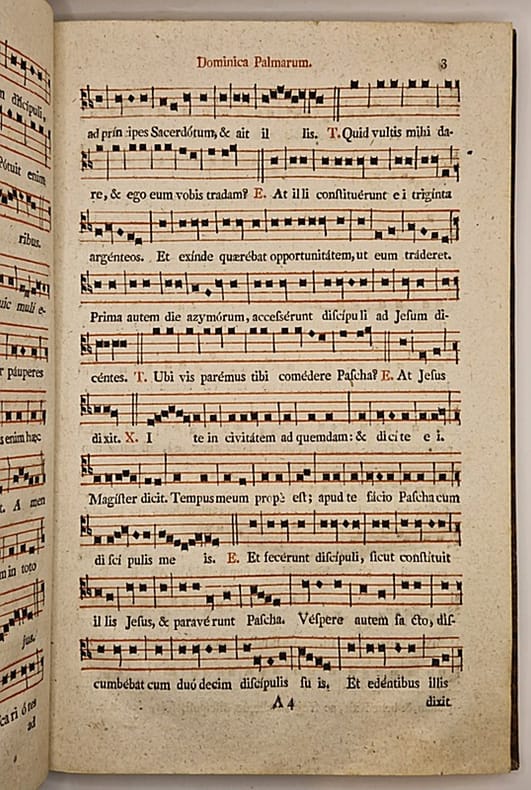 n discípuli,
Pótuit enim
ribus.
uic muli e-
r páuperes
s enim hæc
t. A men
m in toto
jus.
ca ri ó tes
ad
Dominica Palmarum. 3
ad prin ipes Sacerdótum, & ait il lis. T. Quid vultis mihi da-
re, & ego eum vobis tradam? E. At il li constituérunt e i triginta
argénteos. Et exínde quærébat opportunitátem, ut eum tráderet.
Prima autem die azymórum, accessérunt discípu li ad Jesum di-
céntes. T. Ubi vis parémus tibi comédere Pascha? E. At Jesus
dixit. X. I te in civitátem ad quemdam: & dícite e i.
Magíster dicit. Tempus meum propè est; apud te fácio Pascha cum
di sci pulis me is. E. Et fecérunt discípuli, sicut constituit
il lis Jesus, & paravérunt Pascha. Véspere autem fa cto, dis-
cumbébat cum duódecim discípulis su is. Et edéntibus illis
A 4 dixit